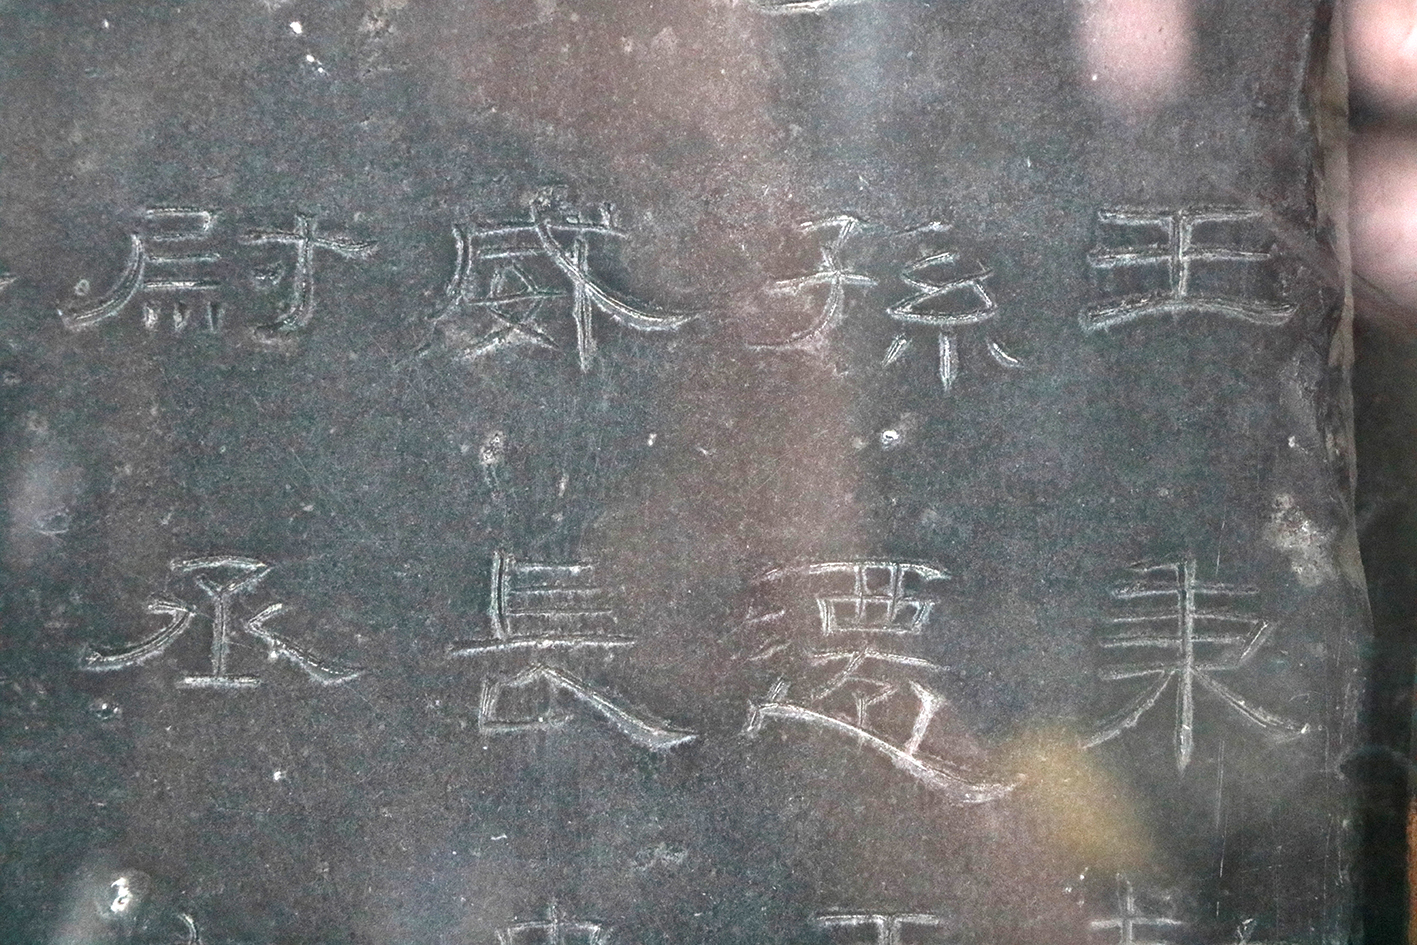 王秉
孫遷
威長
尉丞